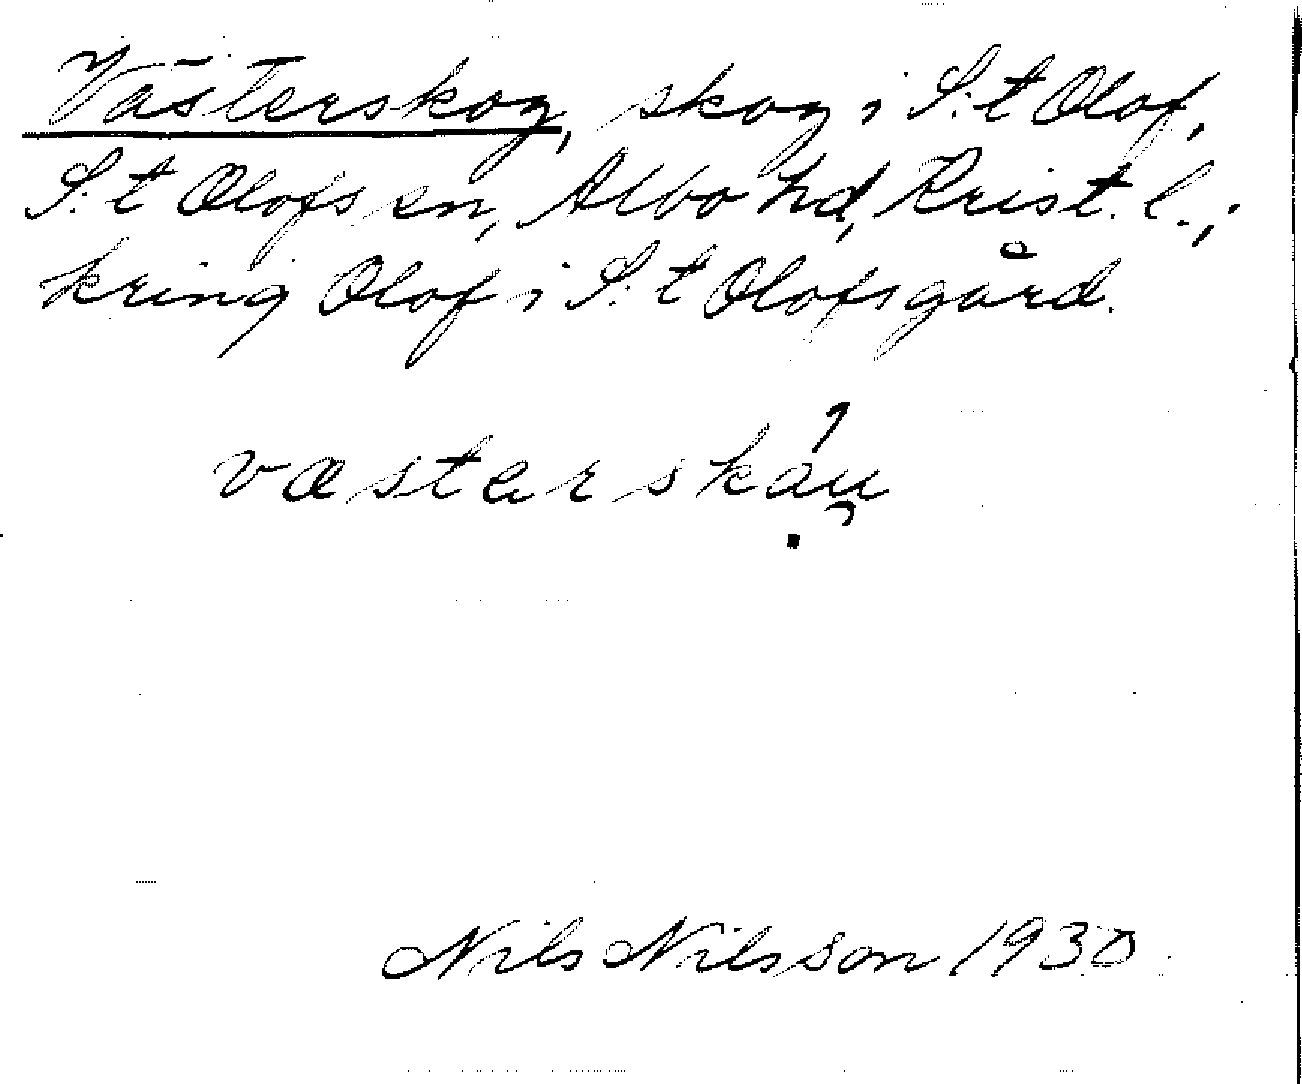 Västerskog, skog i S:t Olof,
S:t Olofs sn, Albo hd, Krist. l.,
kring Olof i S:t Olofsgård.
væsterskáu̯
Nils Nilsson 1930